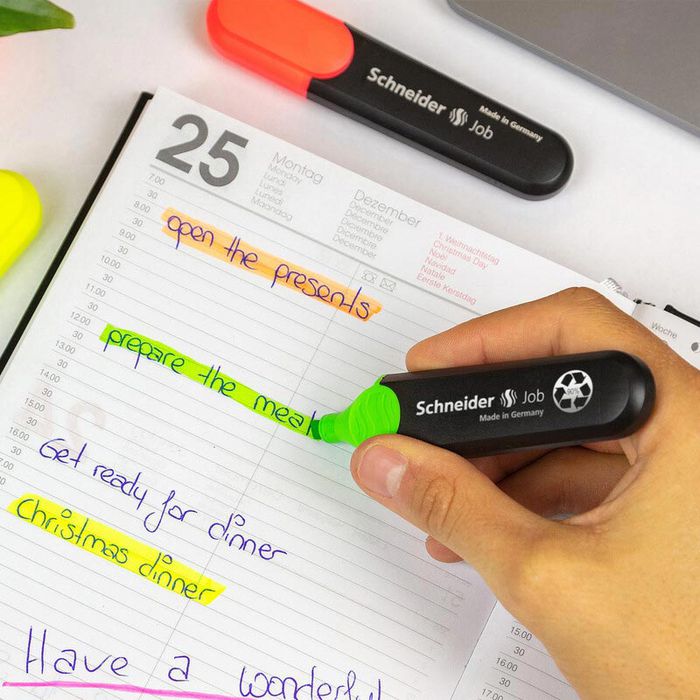 Schneider Job
Made in Germany
25
Montag
Monday
Lundi
Lunes
Lunedì
Maandag
Dezember
December
Décembre
Diciembre
Dicembre
December
1. Weihnachtstag
Christmas Day
Noël
Navidad
Natale
Eerste Kerstdag
Woche
7.00
30
8.00
open the presents
30
9.00
30
10.00
30
11.00
30
12.00
prepare the meal
30
13.00
30
14.00
30
15.00
30
16.00
Get ready for dinner
30
17.00
30
Christmas dinner
Have a wonderful
Schneider Job
Made in Germany
15.00
30
16.00
30
17.00